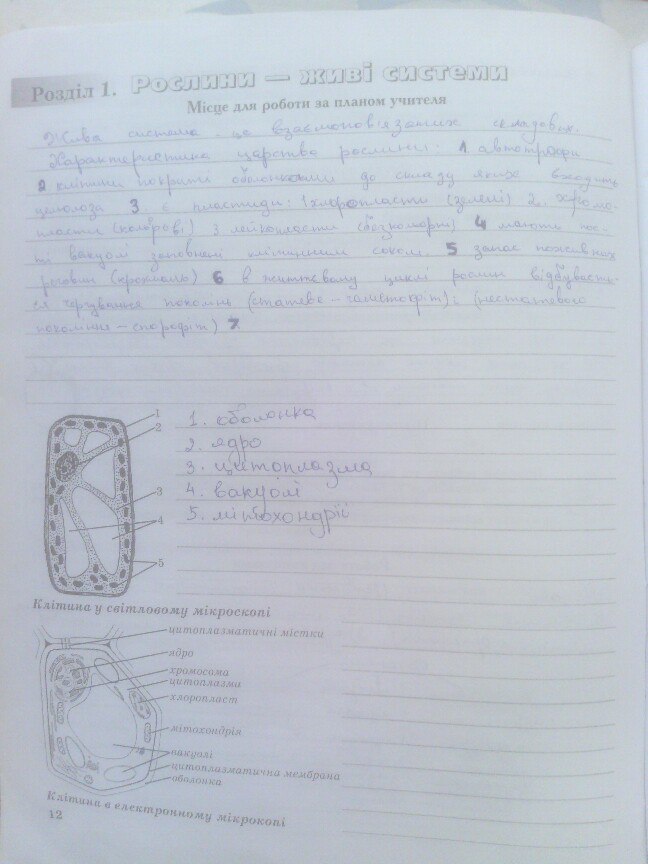 Розділ 1. Рослини — живі системи
Місце для роботи за планом учителя
Жива система - це взаємопов'язаних складових.
Характеристика царства рослини: 1 автотрофи
2 клітини покриті оболонками до складу яких входить
целюлоза 3. є пластиди: 1хлоропласти (зелені) 2. хромо-
пласти (кольорові) 3 лейкопласти (безкольорні) 4 мають пос-
ті вакуолі заповнені клітинним соком. 5 запас поживних
речовин (крохмаль) 6 в життєвому циклі рослин відбуваєть-
ся чергування поколінь (статеве - гаметофіт) і (нестатевого
покоління - спорофіт) 7
1
2
3
4
5
1. оболонка
2. ядро
3. цитоплазма
4. вакуолі
5. мітохондрії
Клітина у світловому мікроскопі
цитоплазматичні містки
ядро
хромосома
цитоплазма
хлоропласт
мітохондрія
вакуолі
цитоплазматична мембрана
оболонка
Клітина в електронному мікрокопі
12